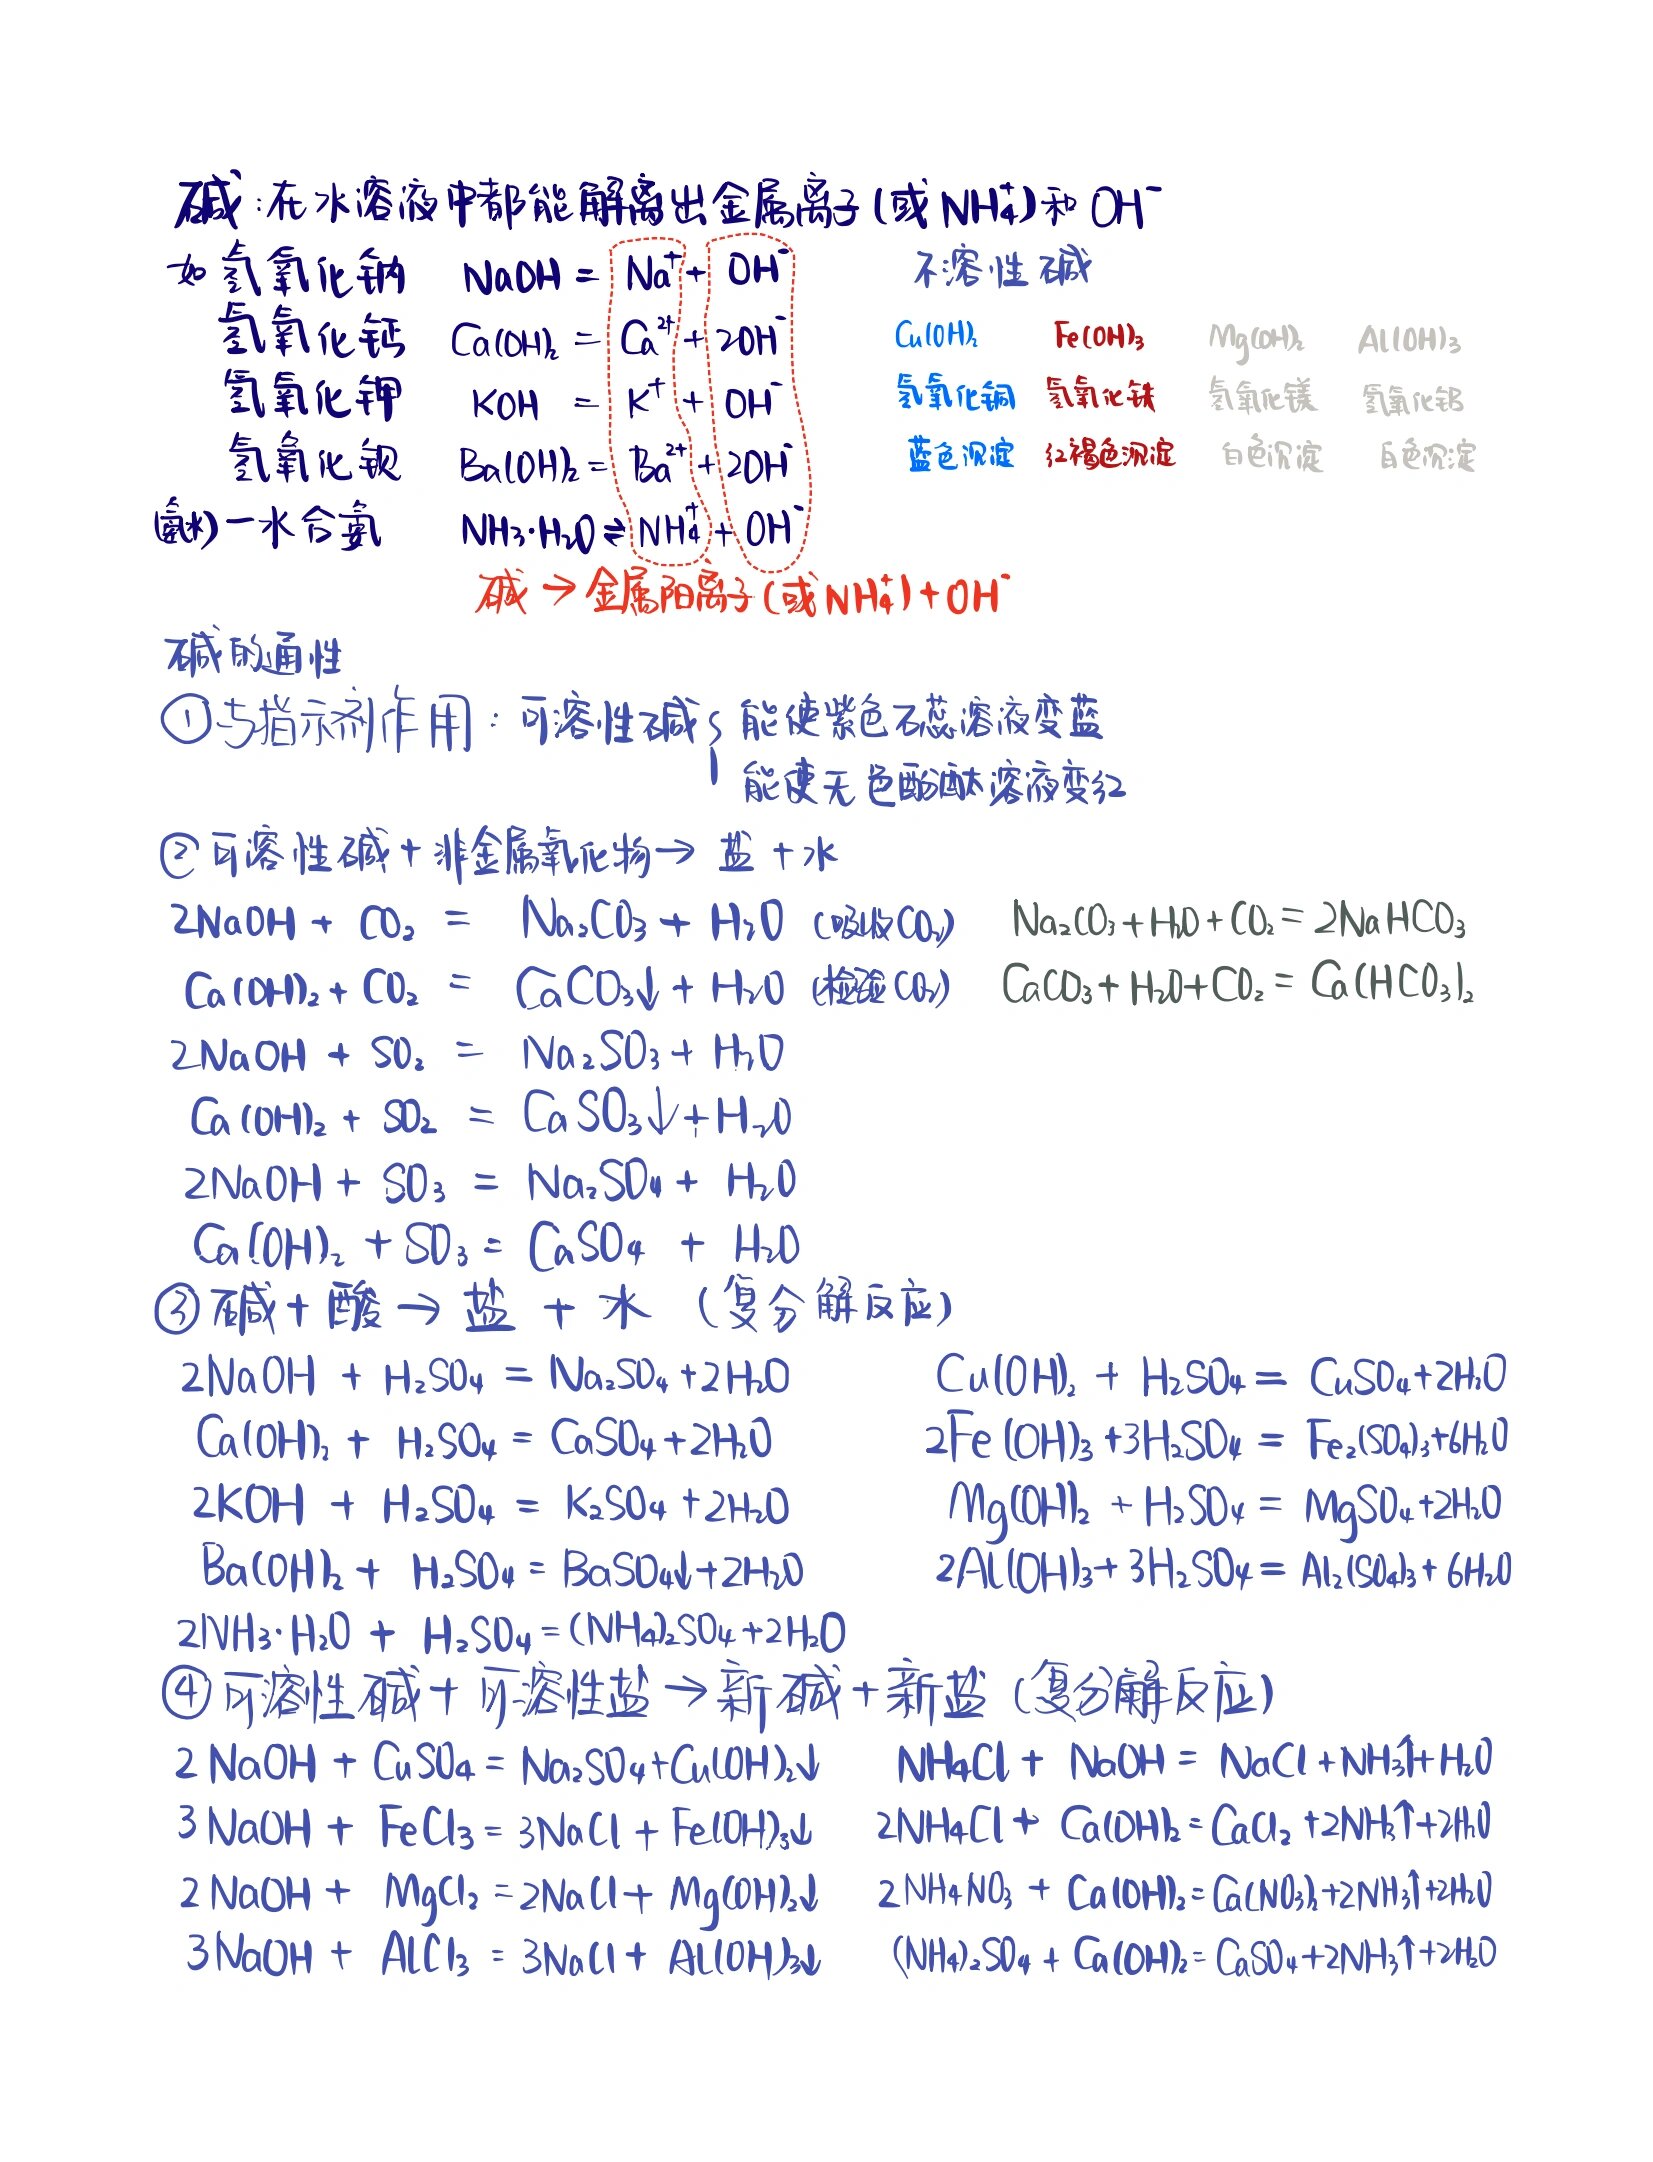 碱:在水溶液中都能解离出金属离子(或NH₄⁺)和OH⁻
如 氢氧化钠 NaOH = Na⁺ + OH⁻
氢氧化钙 Ca(OH)₂ = Ca²⁺ + 2OH⁻
氢氧化钾 KOH = K⁺ + OH⁻
氢氧化钡 Ba(OH)₂ = Ba²⁺ + 2OH⁻
(氨水)一水合氨 NH₃·H₂O ⇌ NH₄⁺ + OH⁻
碱 → 金属阳离子(或NH₄⁺) + OH⁻
不溶性碱
Cu(OH)₂ Fe(OH)₃ Mg(OH)₂ Al(OH)₃
氢氧化铜 氢氧化铁 氢氧化镁 氢氧化铝
蓝色沉淀 红褐色沉淀 白色沉淀 白色沉淀
碱的通性
①与指示剂作用:可溶性碱{ 能使紫色石蕊溶液变蓝
能使无色酚酞溶液变红
②可溶性碱+非金属氧化物→盐+水
2NaOH + CO₂ = Na₂CO₃ + H₂O (吸收CO₂) Na₂CO₃+H₂O+CO₂=2NaHCO₃
Ca(OH)₂ + CO₂ = CaCO₃↓ + H₂O (检验CO₂) CaCO₃+H₂O+CO₂=Ca(HCO₃)₂
2NaOH + SO₂ = Na₂SO₃ + H₂O
Ca(OH)₂ + SO₂ = CaSO₃↓+H₂O
2NaOH + SO₃ = Na₂SO₄ + H₂O
Ca(OH)₂ + SO₃ = CaSO₄ + H₂O
③碱+酸→盐+水 (复分解反应)
2NaOH + H₂SO₄ = Na₂SO₄+2H₂O Cu(OH)₂ + H₂SO₄ = CuSO₄+2H₂O
Ca(OH)₂ + H₂SO₄ = CaSO₄+2H₂O 2Fe(OH)₃+3H₂SO₄ = Fe₂(SO₄)₃+6H₂O
2KOH + H₂SO₄ = K₂SO₄+2H₂O Mg(OH)₂ + H₂SO₄ = MgSO₄+2H₂O
Ba(OH)₂ + H₂SO₄ = BaSO₄↓+2H₂O 2Al(OH)₃+3H₂SO₄ = Al₂(SO₄)₃+6H₂O
2NH₃·H₂O + H₂SO₄ = (NH₄)₂SO₄+2H₂O
④可溶性碱+可溶性盐→新碱+新盐(复分解反应)
2NaOH + CuSO₄ = Na₂SO₄+Cu(OH)₂↓ NH₄Cl + NaOH = NaCl+NH₃↑+H₂O
3NaOH + FeCl₃ = 3NaCl + Fe(OH)₃↓ 2NH₄Cl + Ca(OH)₂ = CaCl₂+2NH₃↑+2H₂O
2NaOH + MgCl₂ = 2NaCl + Mg(OH)₂↓ 2NH₄NO₃ + Ca(OH)₂ = Ca(NO₃)₂+2NH₃↑+2H₂O
3NaOH + AlCl₃ = 3NaCl + Al(OH)₃↓ (NH₄)₂SO₄ + Ca(OH)₂ = CaSO₄+2NH₃↑+2H₂O